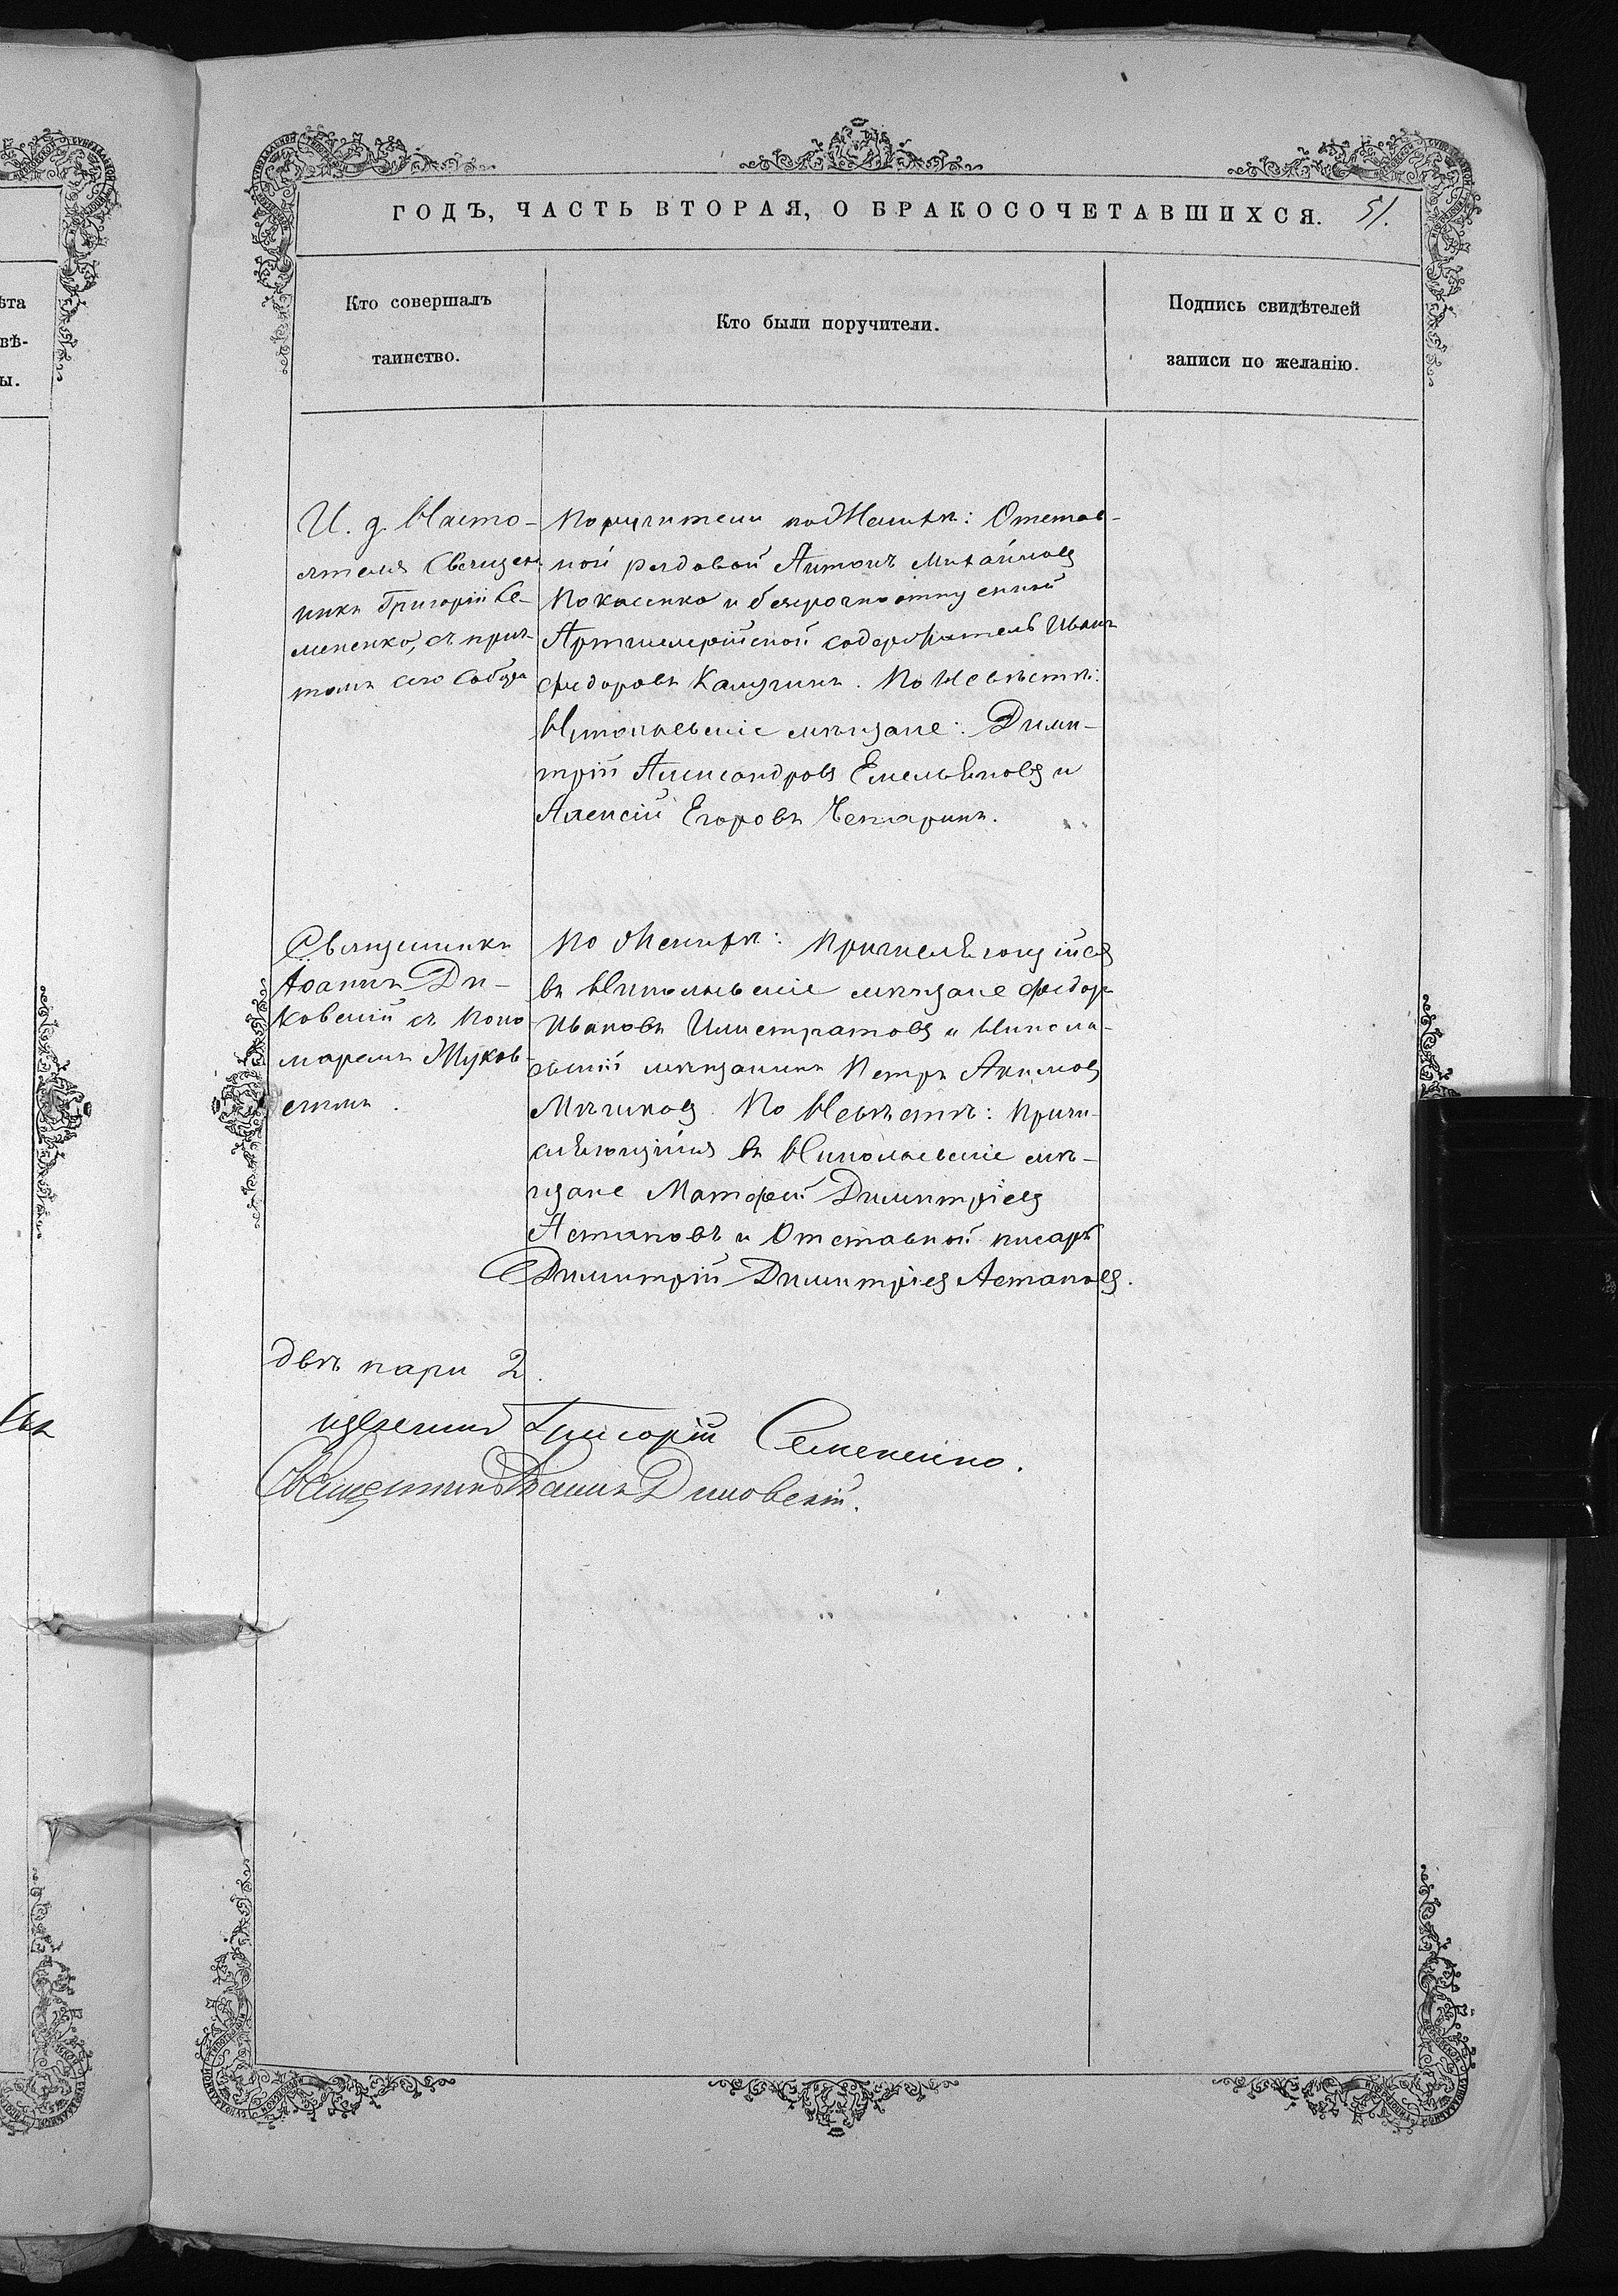 ГОДЪ, ЧАСТЬ ВТОРАЯ, О БРАКОСОЧЕТАВШИХСЯ. 51.
Кто совершалъ
таинство.
Кто были поручители.
Подпись свидѣтелей
записи по желанію.
И. д. Насто-
ятеля Священ
никъ Григорій Се-
мененко, съ прич-
томъ сего Собора
Поручители по Женихѣ: Отстав-
ной рядовой Антонъ Михайловъ
Покасенко и безсрочноотпускной
Артиллерійской содержатель Иванъ
Федоровъ Калугинъ. По Невѣстѣ:
Николаевскіе мѣщане: Дими-
трій Александровъ Емельяновъ и
Алексій Егоровъ Чекаринъ.
Священникъ
Іоаннъ Ди-
ковскій съ Поно
маремъ Жуков-
скимъ.
По Женихѣ: Причисляющійся
въ Николаевскіе мѣщане Федоръ
Ивановъ Илистратовъ и Никола-
евскій мѣщанинъ Петръ Акимовъ
Мѣшковъ. По Невѣстѣ: Причи-
сляющійся въ Николаевскіе мѣ-
щане Матфей Димитріевъ
Астаповъ и Отставной писарь
Димитрій Димитріевъ Астаповъ.
Двѣ пары 2.
Григорій Семененко.
Священникъ Іоаннъ Диковскій.
ѣта
вѣ-
ы.